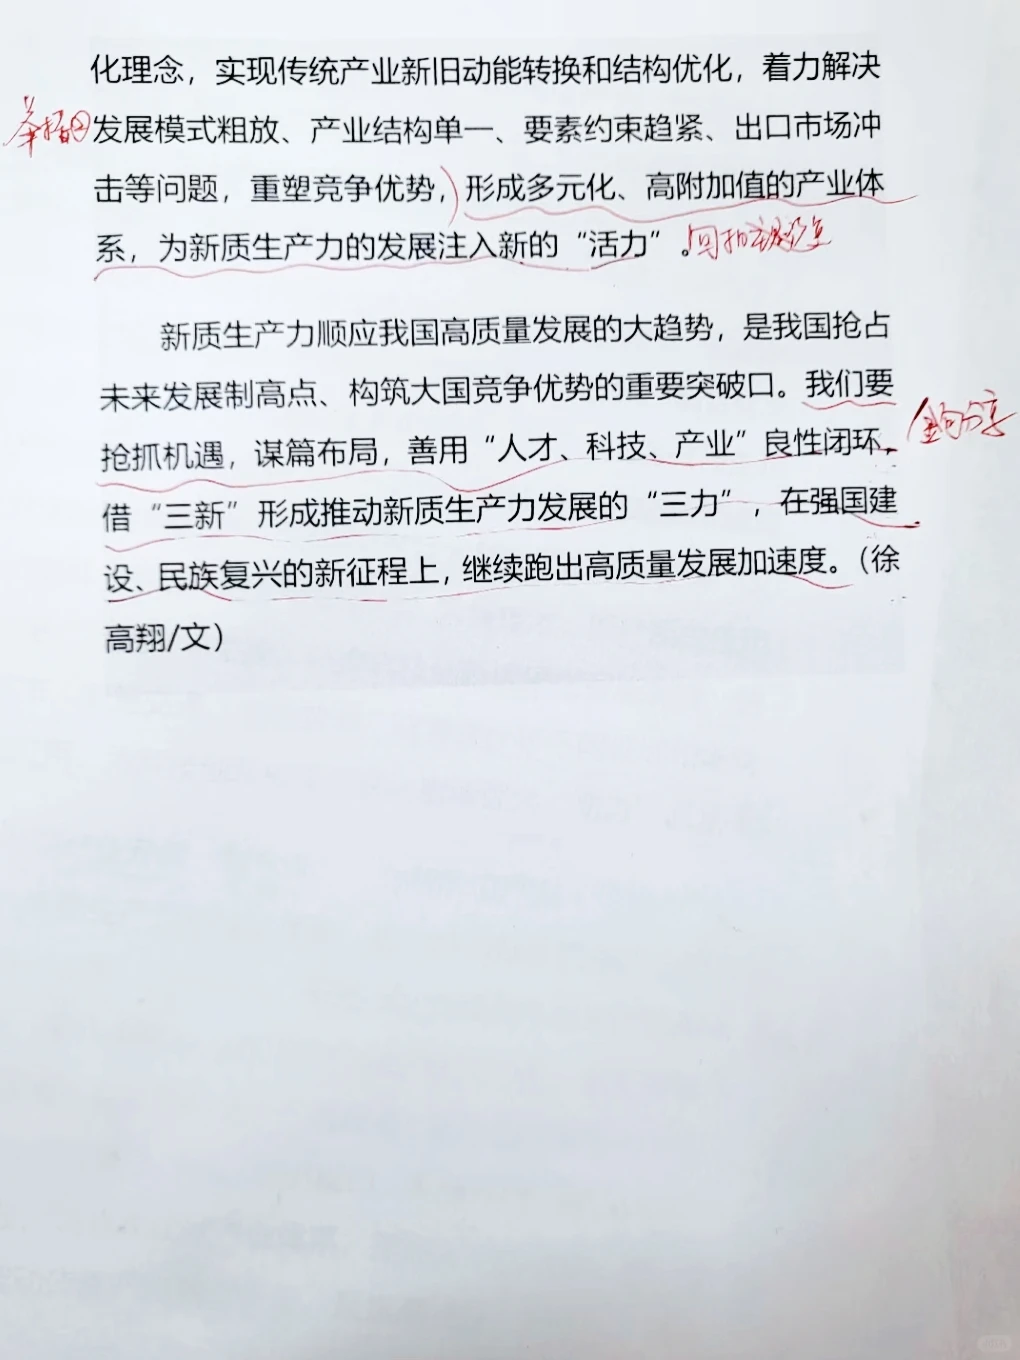 化理念，实现传统产业新旧动能转换和结构优化，着力解决
发展模式粗放、产业结构单一、要素约束趋紧、出口市场冲
击等问题，重塑竞争优势，形成多元化、高附加值的产业体
系，为新质生产力的发展注入新的“活力”。
新质生产力顺应我国高质量发展的大趋势，是我国抢占
未来发展制高点、构筑大国竞争优势的重要突破口。我们要
抢抓机遇，谋篇布局，善用“人才、科技、产业”良性闭环，
金句分享
借“三新”形成推动新质生产力发展的“三力”，在强国建
设、民族复兴的新征程上，继续跑出高质量发展加速度。（徐
高翔/文）